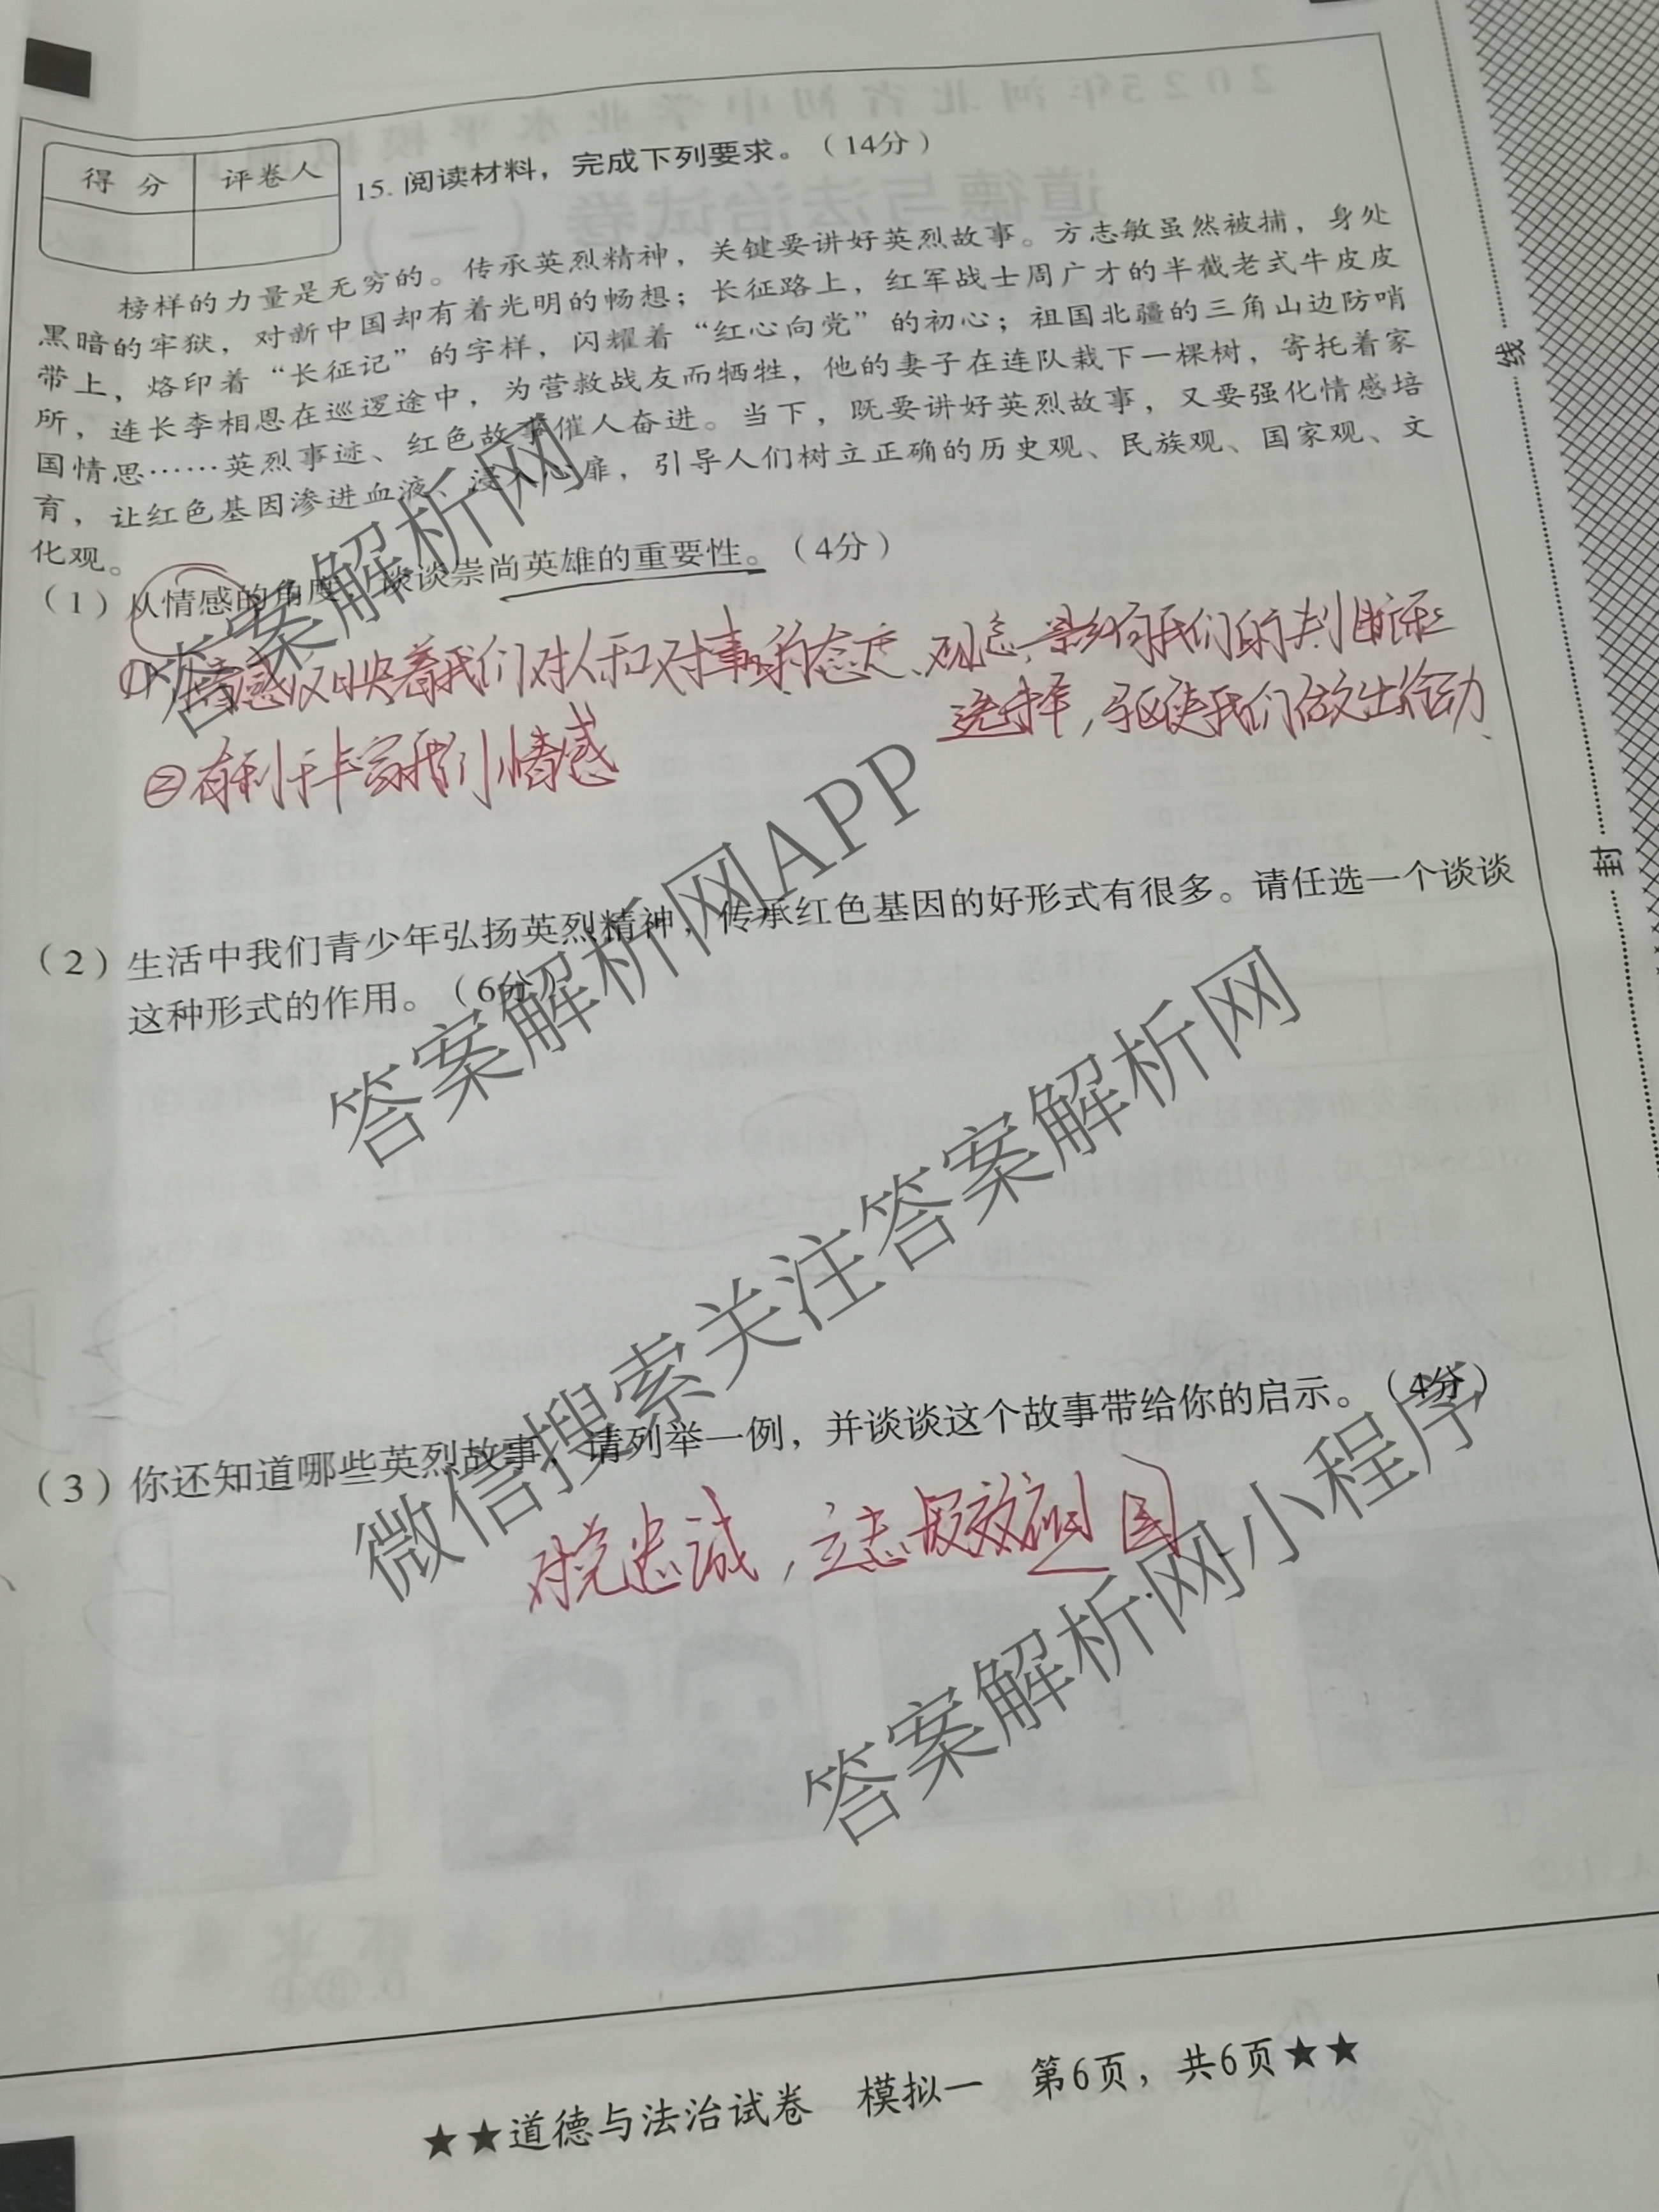 得 分 评卷人
15. 阅读材料，完成下列要求。（14分）
榜样的力量是无穷的。传承英烈精神，关键要讲好英烈故事。方志敏虽然被捕，身处
黑暗的牢狱，对新中国却有着光明的畅想；长征路上，红军战士周广才的半截老式牛皮皮
带上，烙印着“长征记”的字样，闪耀着“红心向党”的初心；祖国北疆的三角山边防哨
所，连长李相恩在巡逻途中，为营救战友而牺牲，他的妻子在连队栽下一棵树，寄托着家
国情思……英烈事迹、红色故事催人奋进。当下，既要讲好英烈故事，又要强化情感培
育，让红色基因渗进血液、浸入心扉，引导人们树立正确的历史观、民族观、国家观、文
化观。
（1）从情感的角度，谈谈崇尚英雄的重要性。（4分）
①情感反映着我们对人和对事的态度、观念，影响我们的判断和
选择，驱使我们做出行动
②有利于丰富我们情感
（2）生活中我们青少年弘扬英烈精神，传承红色基因的好形式有很多。请任选一个谈谈
这种形式的作用。（6分）
（3）你还知道哪些英烈故事，请列举一例，并谈谈这个故事带给你的启示。（4分）
对党忠诚，立志报效祖国
★★道德与法治试卷 模拟一 第6页，共6页★★
线
封
答案解析网
答案解析网APP
微信搜索关注答案解析网
答案解析网小程序